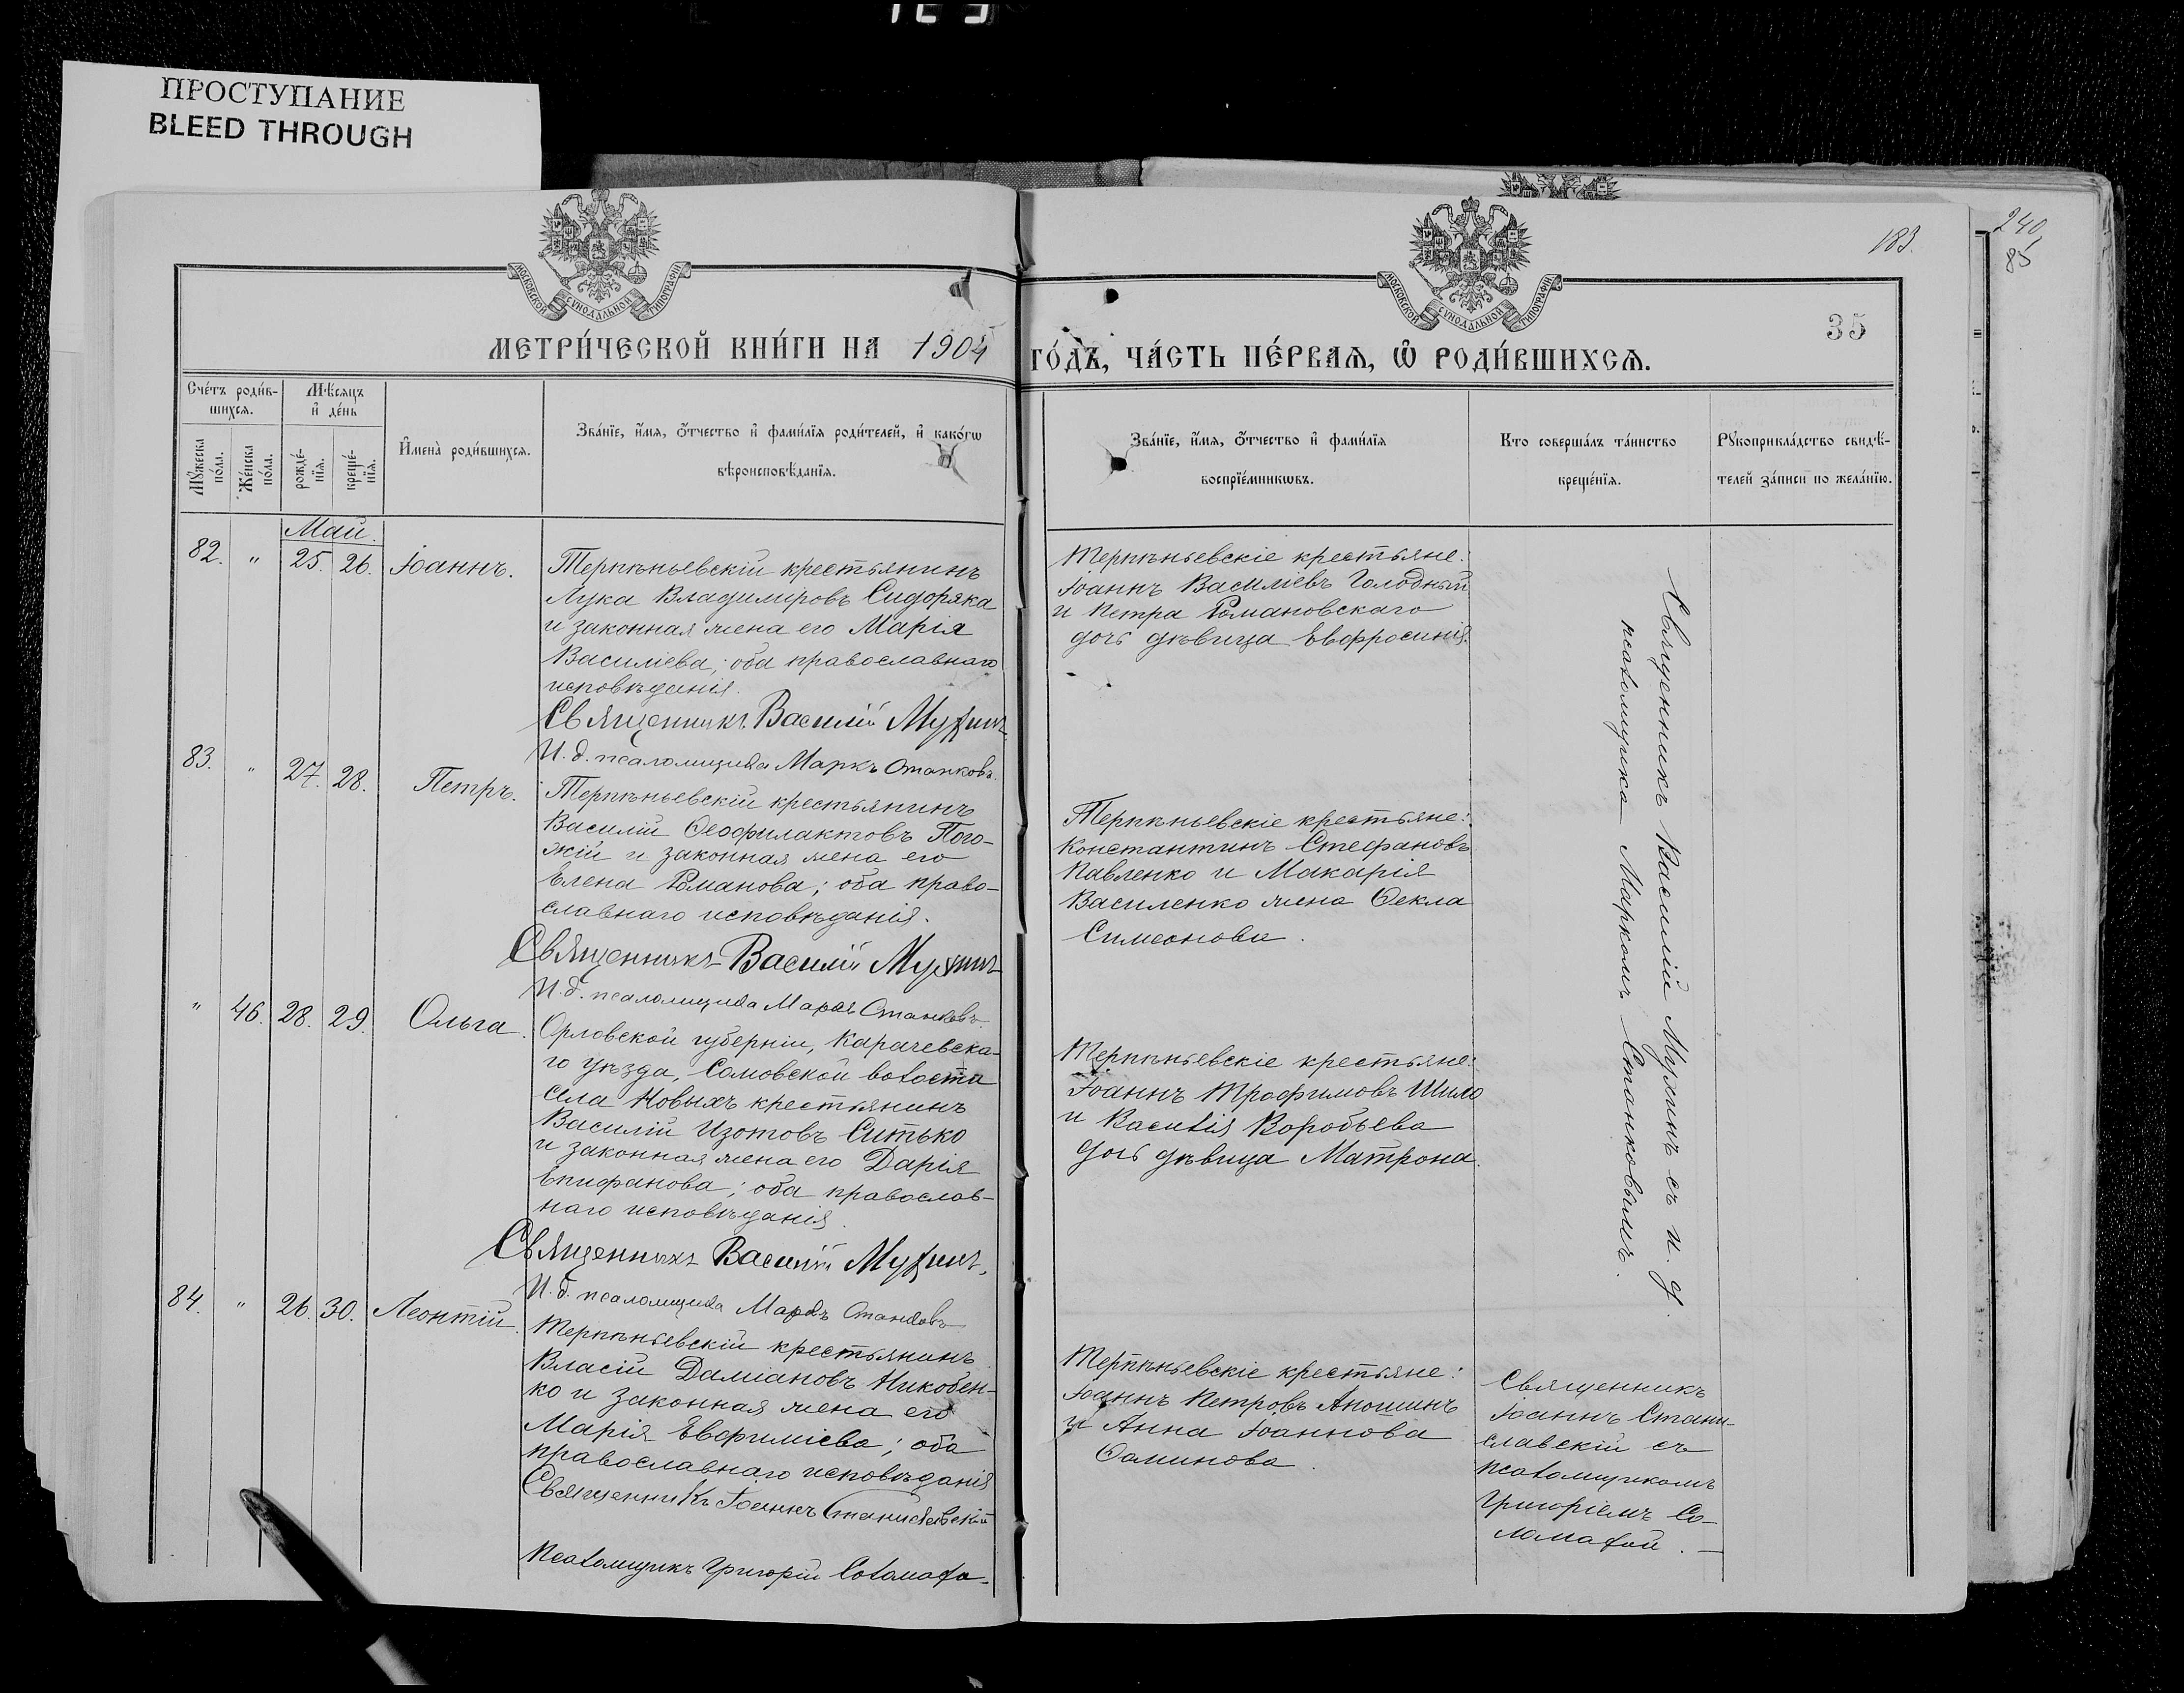 ПРОСТУПАНИЕ
BLEED THROUGH
240
85
183.
35
МОСКОВСКОЙ СѴНОДАЛЬНОЙ ТИПОГРАФІИ
МОСКОВСКОЙ СѴНОДАЛЬНОЙ ТИПОГРАФІИ
МЕТРИ́ЧЕСКОЙ КНИ́ГИ НА 1904
ГО́ДЪ, ЧА́СТЬ ПЕ́РВАѦ, Ѡ҆ РОДИ́ВШИХСѦ.
Сче́тъ роди́в-
шихсѧ.
Мꙋ́жеска по́ла.
Же́нска по́ла.
Мѣ́сѧцъ
и҆ де́нь
рожде́-
нїѧ.
креще́-
нїѧ.
И҆мена̀ роди́вшихсѧ.
Зва́нїе, и҆́мѧ, ѻ҆́тчество и҆ фами́лїѧ роди́телей, и҆ како́гѡ
вѣроисповѣ́данїѧ.
Зва́нїе, и҆́мѧ, ѻ҆́тчество и҆ фами́лїѧ
воспрїе́мникѡвъ.
Кто соверша́лъ та́инство
креще́нїѧ.
Рꙋкоприкла́дство свидѣ́-
телей за́писи по жела́нїю.
Май.
82. " 25. 26. Іоаннъ.
Терпѣньевскій крестьянинъ
Лука Владимировъ Сидоряка
и законная жена его Марія
Василіева; оба православнаго
исповѣданія.
Священникъ Василій Мухинъ
И. д. псаломщика Маркъ Станковъ.
Терпѣньевскіе крестьяне:
Іоаннъ Василіевъ Голодный
и Петра Романовскаго
дочь дѣвица Евфросинія.
83. " 27. 28. Петръ.
Терпѣньевскій крестьянинъ
Василій Ѳеофилактовъ Пого-
жій и законная жена его
Елена Романова; оба право-
славнаго исповѣданія.
Священникъ Василій Мухинъ
И. д. псаломщика Маркъ Станковъ
Терпѣньевскіе крестьяне:
Константинъ Стефановъ
Павленко и Макарія
Василенко жена Ѳекла
Симеонова.
" 46. 28. 29. Ольга.
Орловской губерніи, Карачевска-
го уѣзда, Сомовской волости
села Новыхъ крестьянинъ
Василій Изотовъ Ситько
и законная жена его Дарія
Епифанова; оба православ-
наго исповѣданія.
Священникъ Василій Мухинъ.
И. д. псаломщика Маркъ Станковъ
Терпѣньевскіе крестьяне:
Іоаннъ Трофимовъ Шило
и Василія Воробьева
дочь дѣвица Матрона.
Священникъ Василій Мухинъ съ и. д.
псаломщика Маркомъ Станковымъ.
84. " 26. 30. Леонтій.
Терпѣньевскій крестьянинъ
Власій Даміановъ
ко и законная жена его
Марія Евфиміева; оба
православнаго исповѣданія
Священникъ Іоаннъ Станиславскій
Псаломщикъ Григорій Соломаха.
Терпѣньевскіе крестьяне:
Іоаннъ Петровъ Аношинъ
и Анна Іоаннова
Священникъ
Іоаннъ Стани-
славскій съ
псаломщикомъ
Григоріемъ Со-
ломахой. —